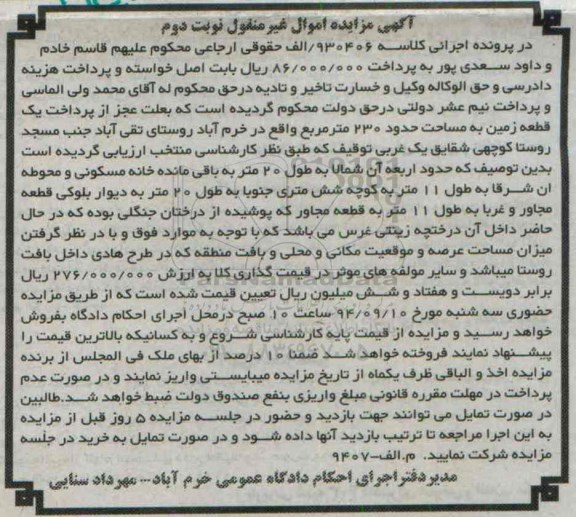 آگهی مزایده اموال غیرمنقول نوبت دوم
در پرونده اجرائی کلاسه ۹۳۰۴۰۶/الف حقوقی ارجاعی محکوم علیهم قاسم خادم
و داود سعدی پور به پرداخت ۸۶/۰۰۰/۰۰۰ ریال بابت اصل خواسته و پرداخت هزینه
دادرسی و حق الوکاله وکیل و خسارت تاخیر و تادیه درحق محکوم له آقای محمد ولی الماسی
و پرداخت نیم عشر دولتی درحق دولت محکوم گردیده است که بعلت عجز از پرداخت یک
قطعه زمین به مساحت حدود ۲۳۰ مترمربع واقع در خرم آباد روستای تقی آباد جنب مسجد
روستا کوچهی شقایق یک غربی توقیف که طبق نظر کارشناسی منتخب ارزیابی گردیده است
بدین توصیف که حدود اربعه آن شمالا به طول ۲۰ متر به باقی مانده خانه مسکونی و محوطه
ان شرقا به طول ۱۱ متر به کوچه شش متری جنوبا به طول ۲۰ متر به دیوار بلوکی قطعه
مجاور و غربا به طول ۱۱ متر به قطعه مجاور که پوشیده از درختان جنگلی بوده که در حال
حاضر داخل آن درختچه زینتی غرس می باشد که با توجه به موارد فوق و با در نظر گرفتن
میزان مساحت عرصه و موقعیت مکانی و محلی و بافت منطقه که در طرح هادی داخل بافت
روستا میباشد و سایر مولفه های موثر در قیمت گذاری کلا به ارزش ۲۷۶/۰۰۰/۰۰۰ ریال
برابر دویست و هفتاد و شش میلیون ریال تعیین قیمت شده است که از طریق مزایده
حضوری سه شنبه مورخ ۹۴/۰۹/۱۰ ساعت ۱۰ صبح درمحل اجرای احکام دادگاه بفروش
خواهد رسید و مزایده از قیمت پایه کارشناسی شروع و به کسانیکه بالاترین قیمت را
پیشنهاد نمایند فروخته خواهد شد ضمنا ۱۰ درصد از بهای ملک فی المجلس از برنده
مزایده اخذ و الباقی ظرف یکماه از تاریخ مزایده میبایستی واریز نمایند و در صورت عدم
پرداخت در مهلت مقرره قانونی مبلغ واریزی بنفع صندوق دولت ضبط خواهد شد.طالبین
در صورت تمایل می توانند جهت بازدید و حضور در جلسه مزایده ۵ روز قبل از مزایده
به این اجرا مراجعه تا ترتیب بازدید آنها داده شود و در صورت تمایل به خرید در جلسه
مزایده شرکت نمایید. م.الف-۹۴۰۷
مدیردفتراجرای احکام دادگاه عمومی خرم آباد-- مهرداد سنایی